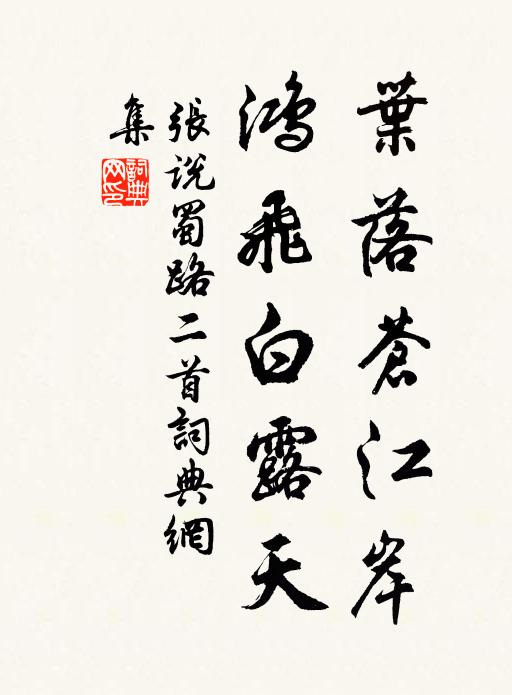 葉落蒼江岸
鴻飛白露天
張説蜀路二首詞典網
集
詞典網印